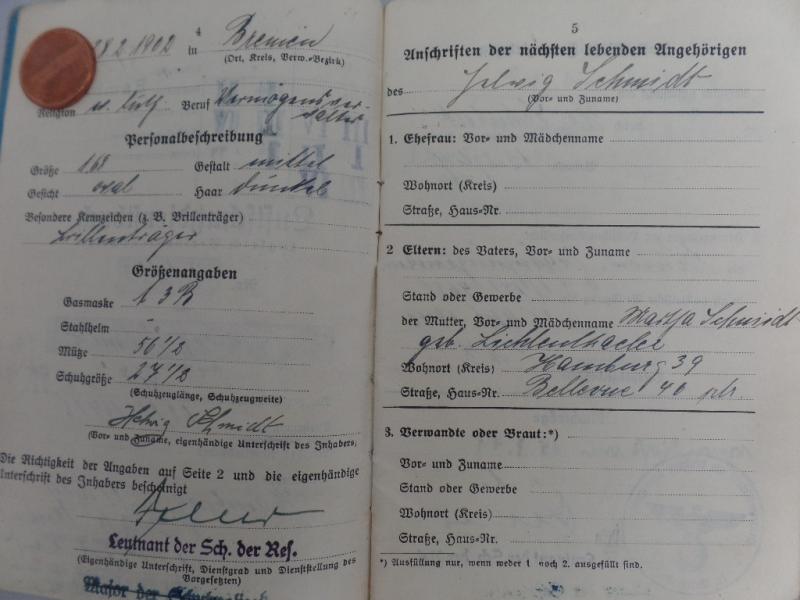 4
8 2 1902 in Bremen
(Ort, Kreis, Verw.-Bezirk)
Religion Beruf Vermögensver-
walter
Personalbeschreibung
Größe 168 Gestalt mittel
Gesicht oval Haar dunkel
Besondere Kennzeichen (z. B. Brillenträger)
Brillenträger
Größenangaben
Gasmaske
Stahlhelm -
Mütze 56 1/2
Schuhgröße 27 1/2
(Schuhzeuglänge, Schuhzeugweite)
Helwig Schmidt
(Vor- und Zuname, eigenhändige Unterschrift des Inhabers)
Die Richtigkeit der Angaben auf Seite 2 und die eigenhändige
Unterschrift des Inhabers bescheinigt
Leutnant der Sch. der Res.
(Eigenhändige Unterschrift, Dienstgrad und Dienststellung des
Vorgesetzten)
Major der
5
Anschriften der nächsten lebenden Angehörigen
des Helwig Schmidt
(Vor- und Zuname)
1. Ehefrau: Vor- und Mädchenname
Wohnort (Kreis)
Straße, Haus-Nr.
2 Eltern: des Vaters, Vor- und Zuname
Stand oder Gewerbe
der Mutter, Vor- und Mädchenname Martha Schmidt
geb. Lichtenhacker
Wohnort (Kreis) Hamburg 39
Straße, Haus-Nr. Bellevue 40 ptr
3. Verwandte oder Braut:*)
Vor- und Zuname
Stand oder Gewerbe
Wohnort (Kreis)
Straße, Haus-Nr.
*) Ausfüllung nur, wenn weder 1 noch 2. ausgefüllt sind.